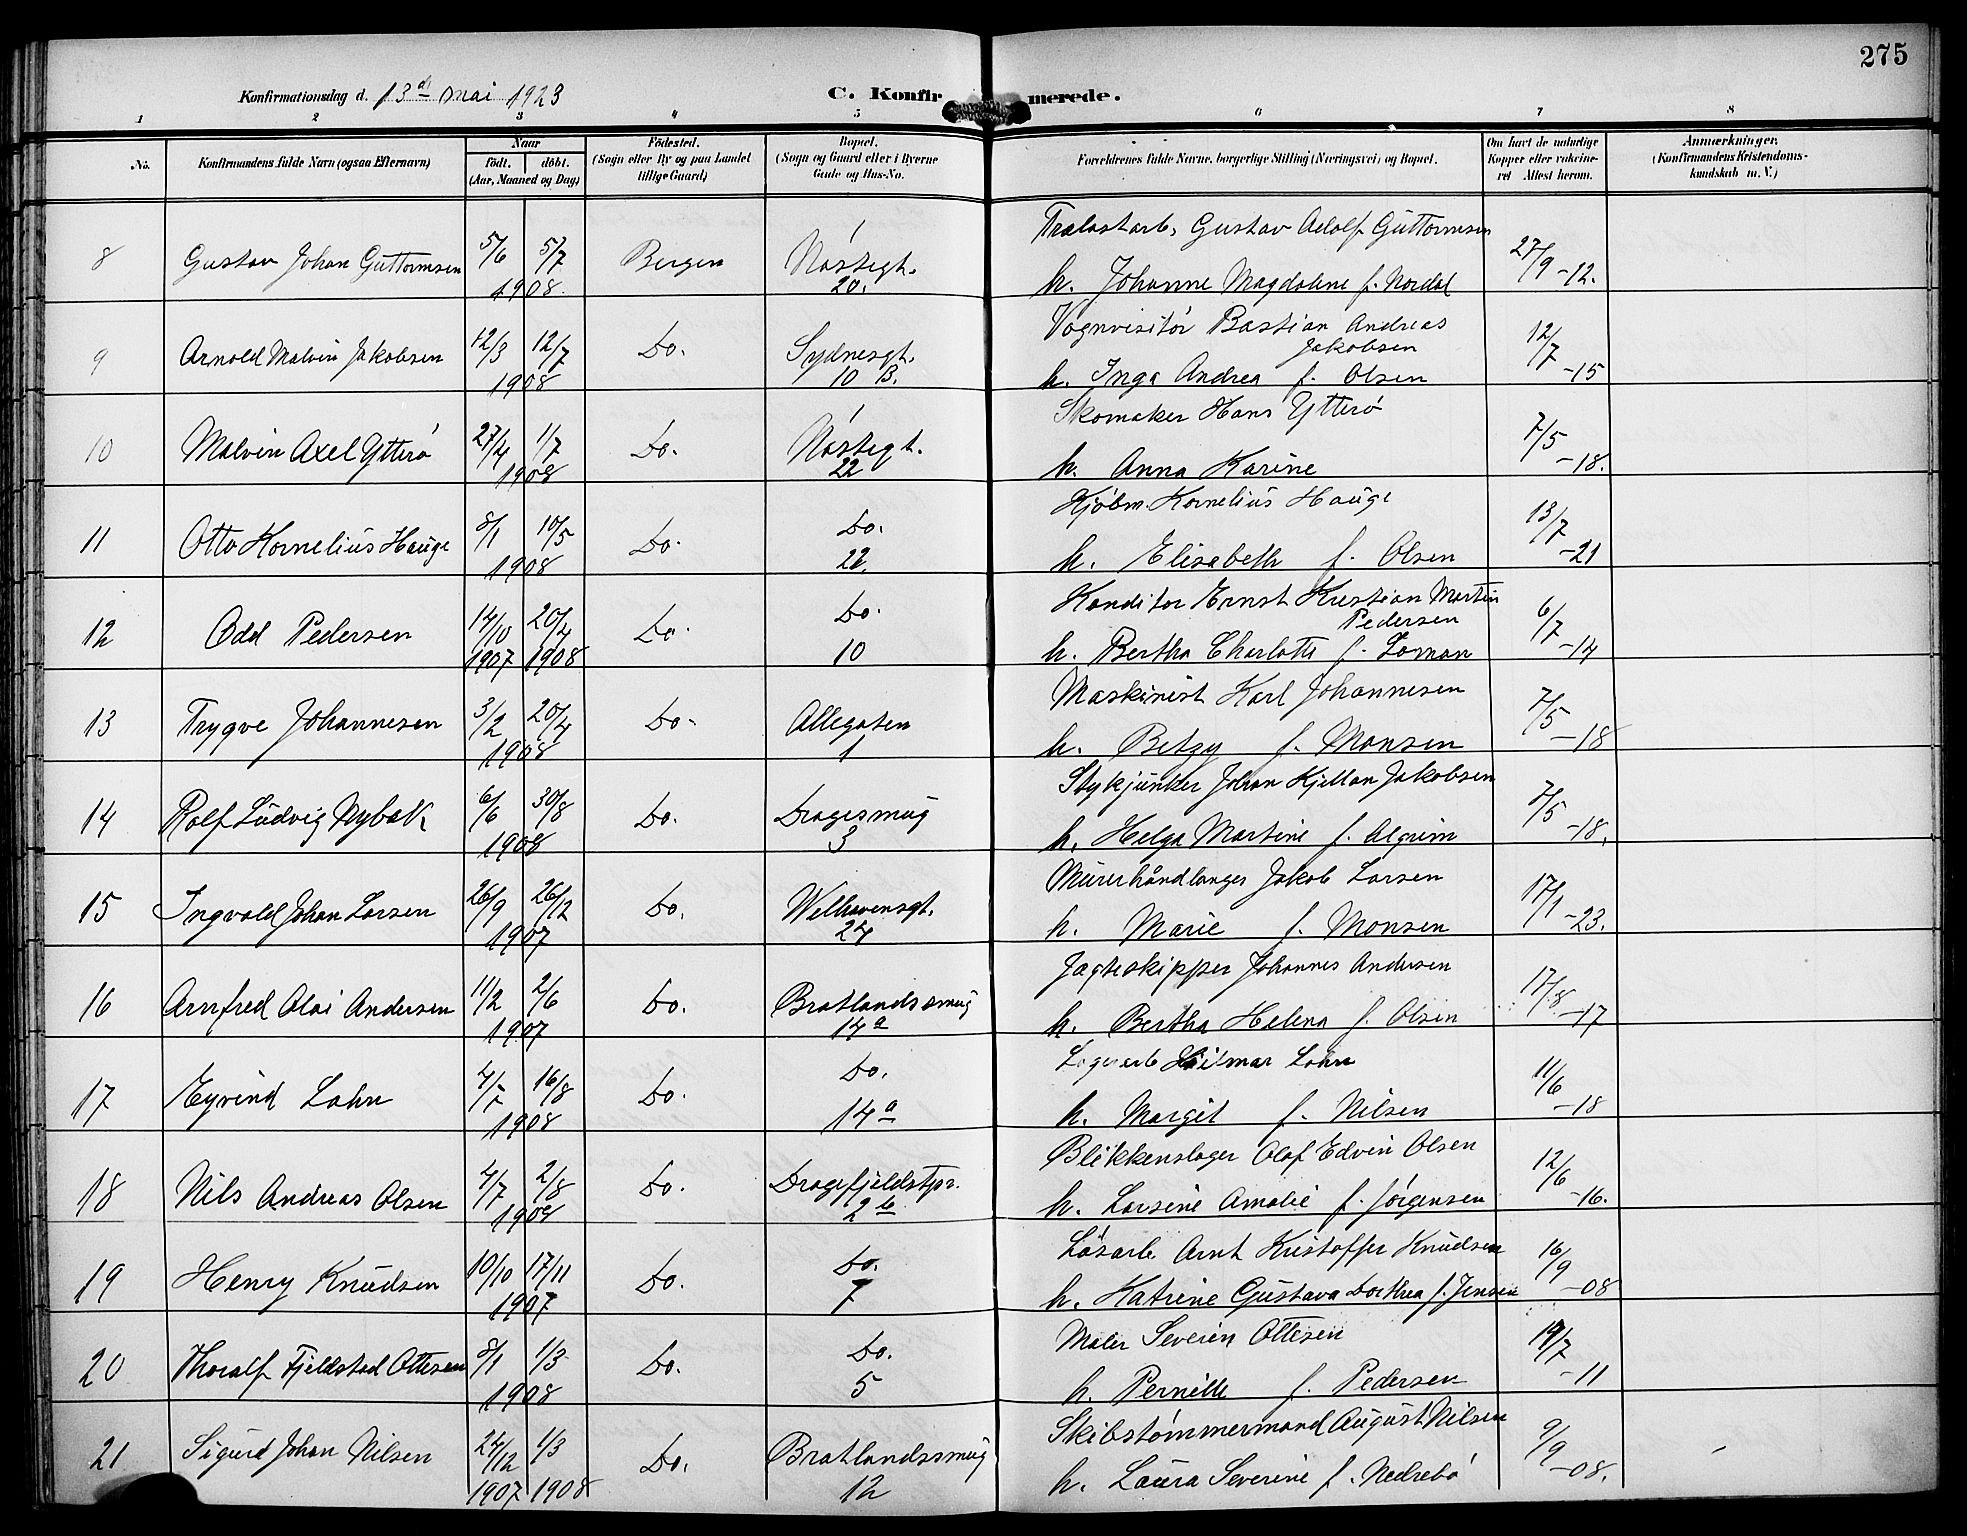 275
Konfirmationsdag d. 13de mai 1923
C. Konfirmerede.
1 2 3 4 5 6 7 8
No.
Konfirmandens fulde Navn (ogsaa Efternavn)
Naar
født. døbt.
(Aar, Maaned og Dag)
Fødested.
(Sogn eller By og paa Landet
tillige Gaard)
Bopæl.
(Sogn og Gaard eller i Byerne
Gade og Hus-No.
Forældrenes fulde Navne, borgerlige Stilling (Næringsvei) og Bopæl.
Om havt de naturlige
Kopper eller vakcine-
ret Attest herom.
Anmærkninger.
(Konfirmandens Kristendoms-
kundskab m. V.)
8 Gustav Johan Guttormsen 5/6 5/7 1908 Bergen Nøstegt. 20.
Trælastarb. Gustav Adolf Guttormsen
h. Johanne Magdalene f. Nordal 27/9 -12.
9 Arnold Malvin Jakobsen 12/3 12/7 1908 Do. Sydnesgt. 10 B.
Vognvisitør Bastian Andreas
Jakobsen
h. Inga Andrea f. Olsen 12/7 -15
10 Malvin Axel Ytterø 27/4 1/7 1908 Do. Nøstegt. 22
Skomaker Hans Ytterø
h. Anna Karine 7/5 -18.
11 Otto Kornelius Hauge 8/1 10/5 1908 Do. Do. 22.
Kjøbm. Kornelius Hauge
h. Elisabeth f. Olsen 13/7 -21
12 Odd Pedersen 14/10 1907 20/4 1908 Do. Do. 10
Konditor Ernst Kristian Martin
Pedersen
h. Bertha Charlotte f. Loman 6/7 -14
13 Trygve Johannesen 3/2 20/4 1908 Do. Allegaten 1
Maskinist Karl Johannesen
h. Betzy f. Monsen 7/5 -18
14 Rolf Ludvig Nybak 6/6 30/8 1908 Do. Dragesmug 3
Stykjunker Johan Kjellan Jakobsen
h. Helga Martine f. Algrim 7/5 -18.
15 Ingvald Johan Larsen 26/9 26/12 1907 Do. Welhavensgt. 24
Murerhåndlanger Jakob Larsen
h. Marie f. Monsen 17/1 -23.
16 Arnfred Olai Andersen 11/2 2/6 1907 Do. Bratlandssmug 14a
Jagteskipper Johannes Andersen
h. Bertha Helena f. Olsen 17/8 -17
17 Eyvind Lahn 4/7 16/8 1908 Do. Do. 14a
Lagerarb Hilmar Lahn
h. Margit f. Nilsen 11/6 -18
18 Nils Andreas Olsen 4/7 2/8 Do. Dragefjeldstpr. 2b
Blikkenslager Olaf Edvin Olsen
h. Larsine Amalie f. Jørgensen 12/6 -16.
19 Henry Knudsen 10/10 17/11 1907 Do. Do. 7
Løsarb Arnt Kristoffer Knudsen
h. Katrine Gustava Dorthea f. Jensen 16/9 -08
20 Thoralf Fjeldstad Ottesen 8/1 1/3 1908 Do. Do. 5
Maler Severin Ottesen
h. Pernille f. Pedersen 19/7 -11
21 Sigurd Johan Nilsen 24/12 1907 1/3 1908 Do. Bratlandssmug 12
Skibstømmermand August Nilsen
h. Laura Severine f. Nedrebø 9/9 -08.